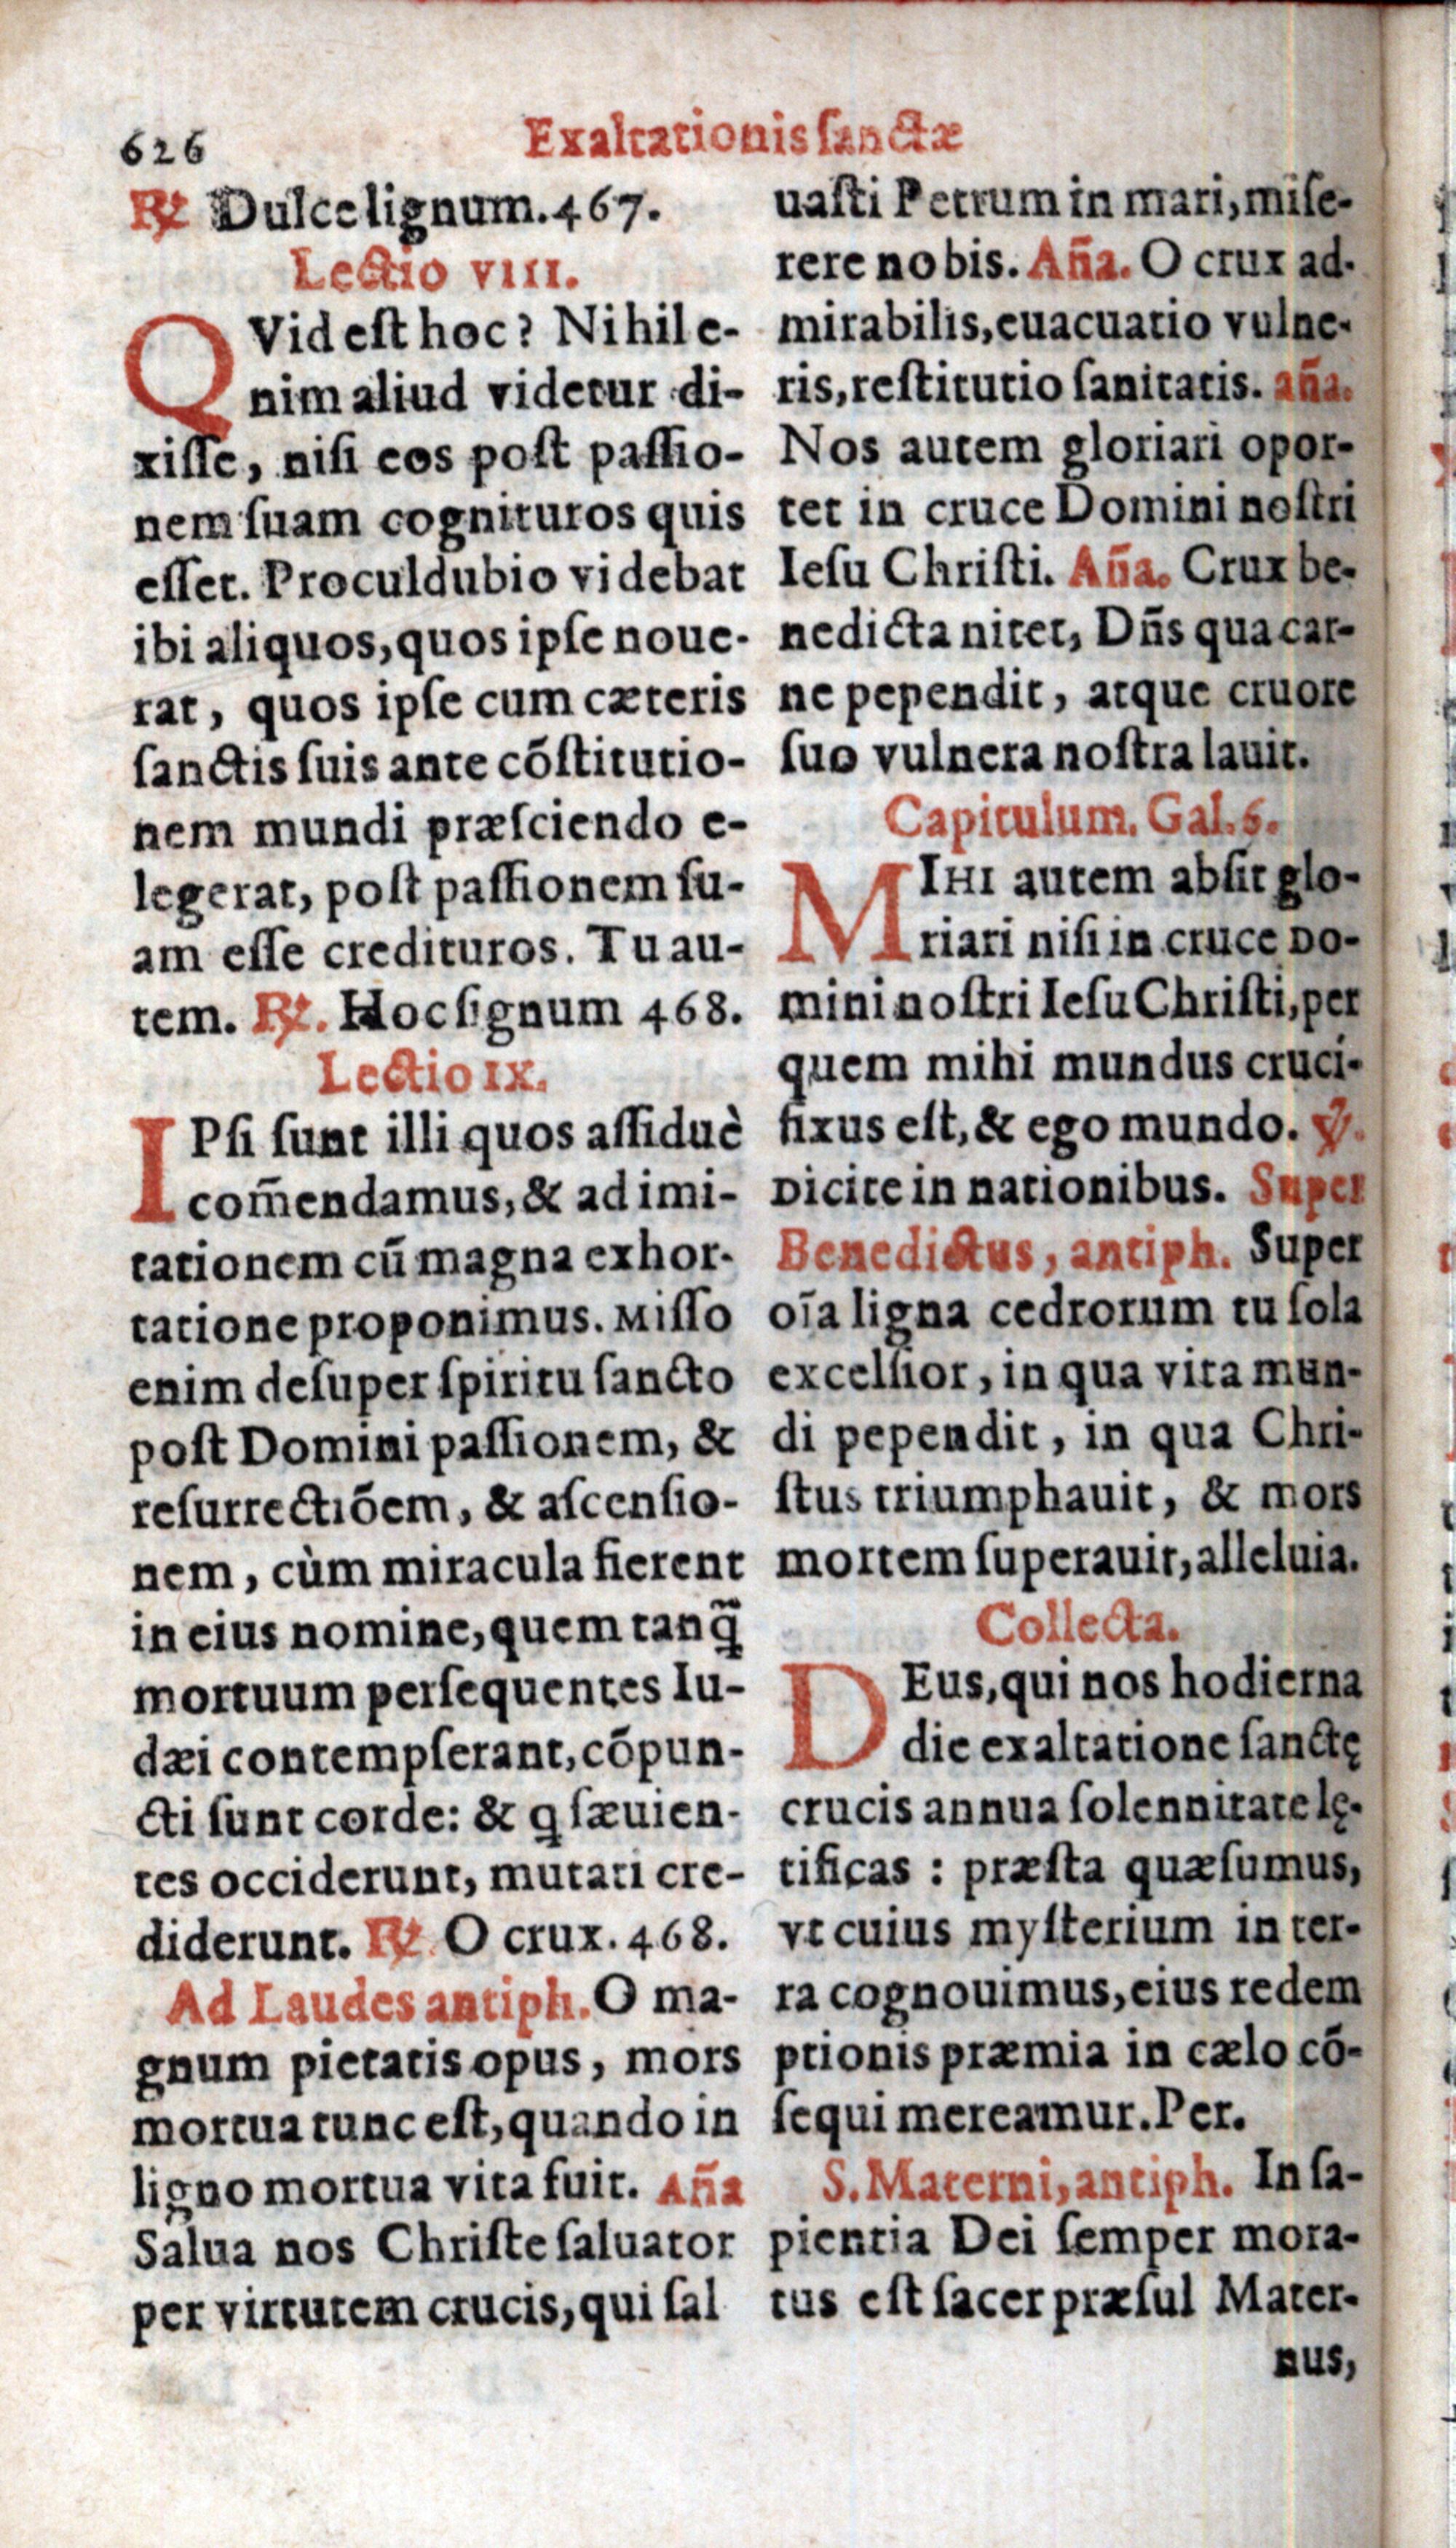 626
Exaltationis ſanctæ
℟ Dulce lignum. 467.
Lectio VIII.
QVid eſt hoc? Nihil e-
nim aliud videtur di-
xiſſe, niſi eos poſt paſſio-
nem ſuam cognituros quis
eſſet. Proculdubio videbat
ibi aliquos, quos ipſe noue-
rat, quos ipſe cum cæteris
ſanctis ſuis ante cōſtitutio-
nem mundi præſciendo e-
legerat, poſt paſſionem ſu-
am eſſe credituros. Tu au-
tem. ℟. Hoc ſignum 468.
Lectio IX.
IPſi ſunt illi quos aſſiduè
com̄endamus, & ad imi-
tationem cū magna exhor-
tatione proponimus. Miſſo
enim deſuper ſpiritu ſancto
poſt Domini paſſionem, &
reſurrectiōem, & aſcenſio-
nem, cùm miracula fierent
in eius nomine, quem tanq̃
mortuum perſequentes Iu-
dæi contempſerant, cōpun-
cti ſunt corde: & q ſæuien-
tes occiderunt, mutati cre-
diderunt. ℟ O crux. 468.
Ad Laudes antiph. O ma-
gnum pietatis opus, mors
mortua tunc eſt, quando in
ligno mortua vita fuit. Añа
Salua nos Chriſte ſaluator
per virtutem crucis, qui ſal
uaſti Petrum in mari, miſe-
rere nobis. Aña. O crux ad-
mirabilis, euacuatio vulne-
ris, reſtitutio ſanitatis. aña.
Nos autem gloriari opor-
tet in cruce Domini noſtri
Ieſu Chriſti. Aña. Crux be-
nedicta nitet, Dñs qua car-
ne pependit, atque cruore
ſuo vulnera noſtra lauit.
Capitulum. Gal. 6.
MIHI autem abſit glo-
riari niſi in cruce Do-
mini noſtri Ieſu Chriſti, per
quem mihi mundus cruci-
fixus eſt, & ego mundo. ℣.
Dicite in nationibus. Super
Benedictus, antiph. Super
oīa ligna cedrorum tu ſola
excelſior, in qua vita mun-
di pependit, in qua Chri-
ſtus triumphauit, & mors
mortem ſuperauit, alleluia.
Collecta.
DEus, qui nos hodierna
die exaltatione ſanctę
crucis annua ſolennitate lę-
tificas : præſta quæſumus,
vt cuius myſterium in ter-
ra cognouimus, eius redem
ptionis præmia in cælo cō-
ſequi mereamur. Per.
S. Materni, antiph. In ſa-
pientia Dei ſemper mora-
tus eſt ſacer præſul Mater-
nus,